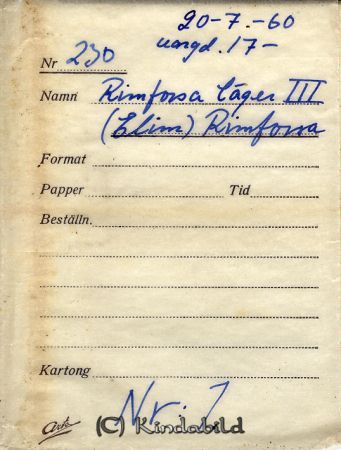 20-7.-60
ungd. 17-
Nr 230
Namn Rimforsa Läger III
(Elim) Rimforsa
Format
Papper Tid
Beställn.
Kartong
Nr. 7
(C) Kindabild